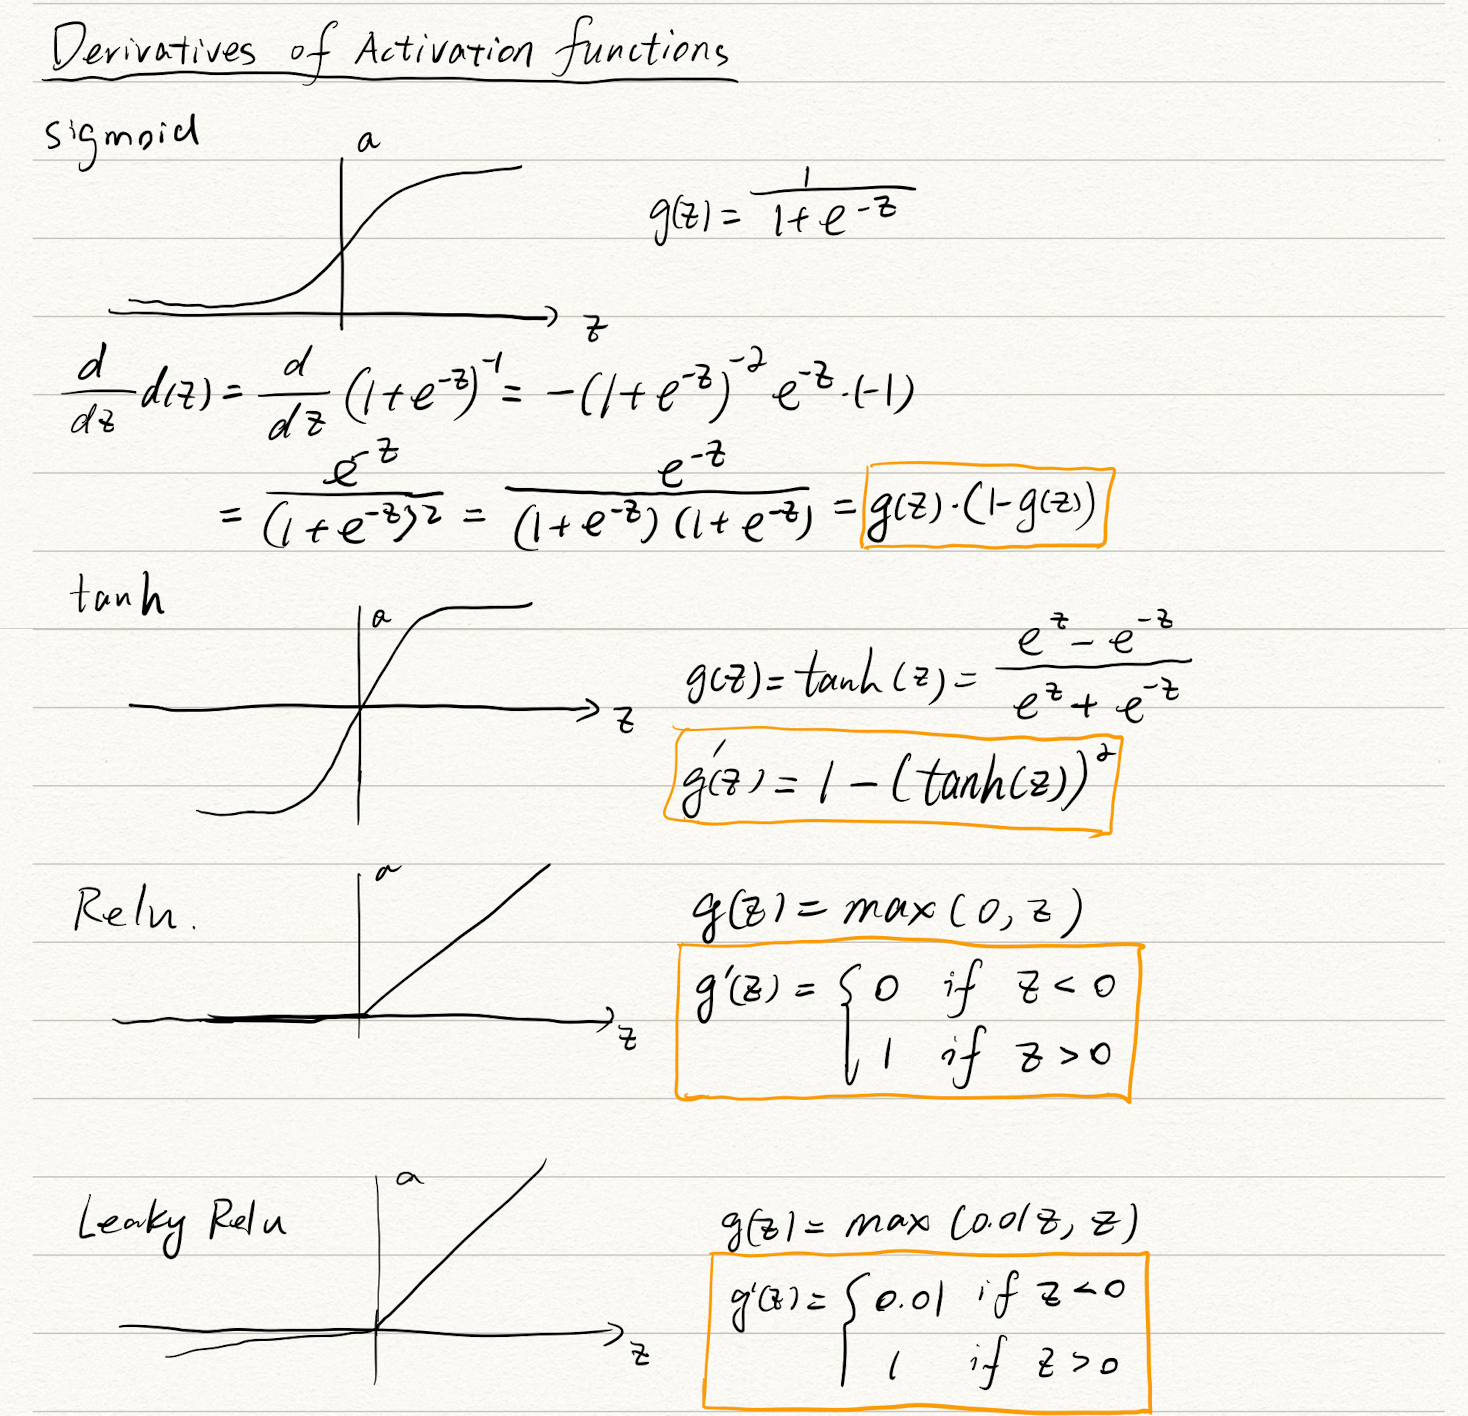 Derivatives of Activation functions
sigmoid
a
g(z) = 1 / (1 + e^-z)
z
d/dz d(z) = d/dz (1+e^-z)^-1 = -(1+e^-z)^-2 e^-z · (-1)
= e^-z / (1+e^-z)^2 = e^-z / (1+e^-z)(1+e^-z) = g(z)·(1-g(z))
tanh
a
g(z) = tanh(z) = (e^z - e^-z) / (e^z + e^-z)
z
g'(z) = 1 - (tanh(z))^2
a
Relu.
g(z) = max(0, z)
g'(z) = { 0 if z < 0
1 if z > 0
z
a
Leaky Relu
g(z) = max(0.01z, z)
g'(z) = { 0.01 if z < 0
z
1 if z > 0